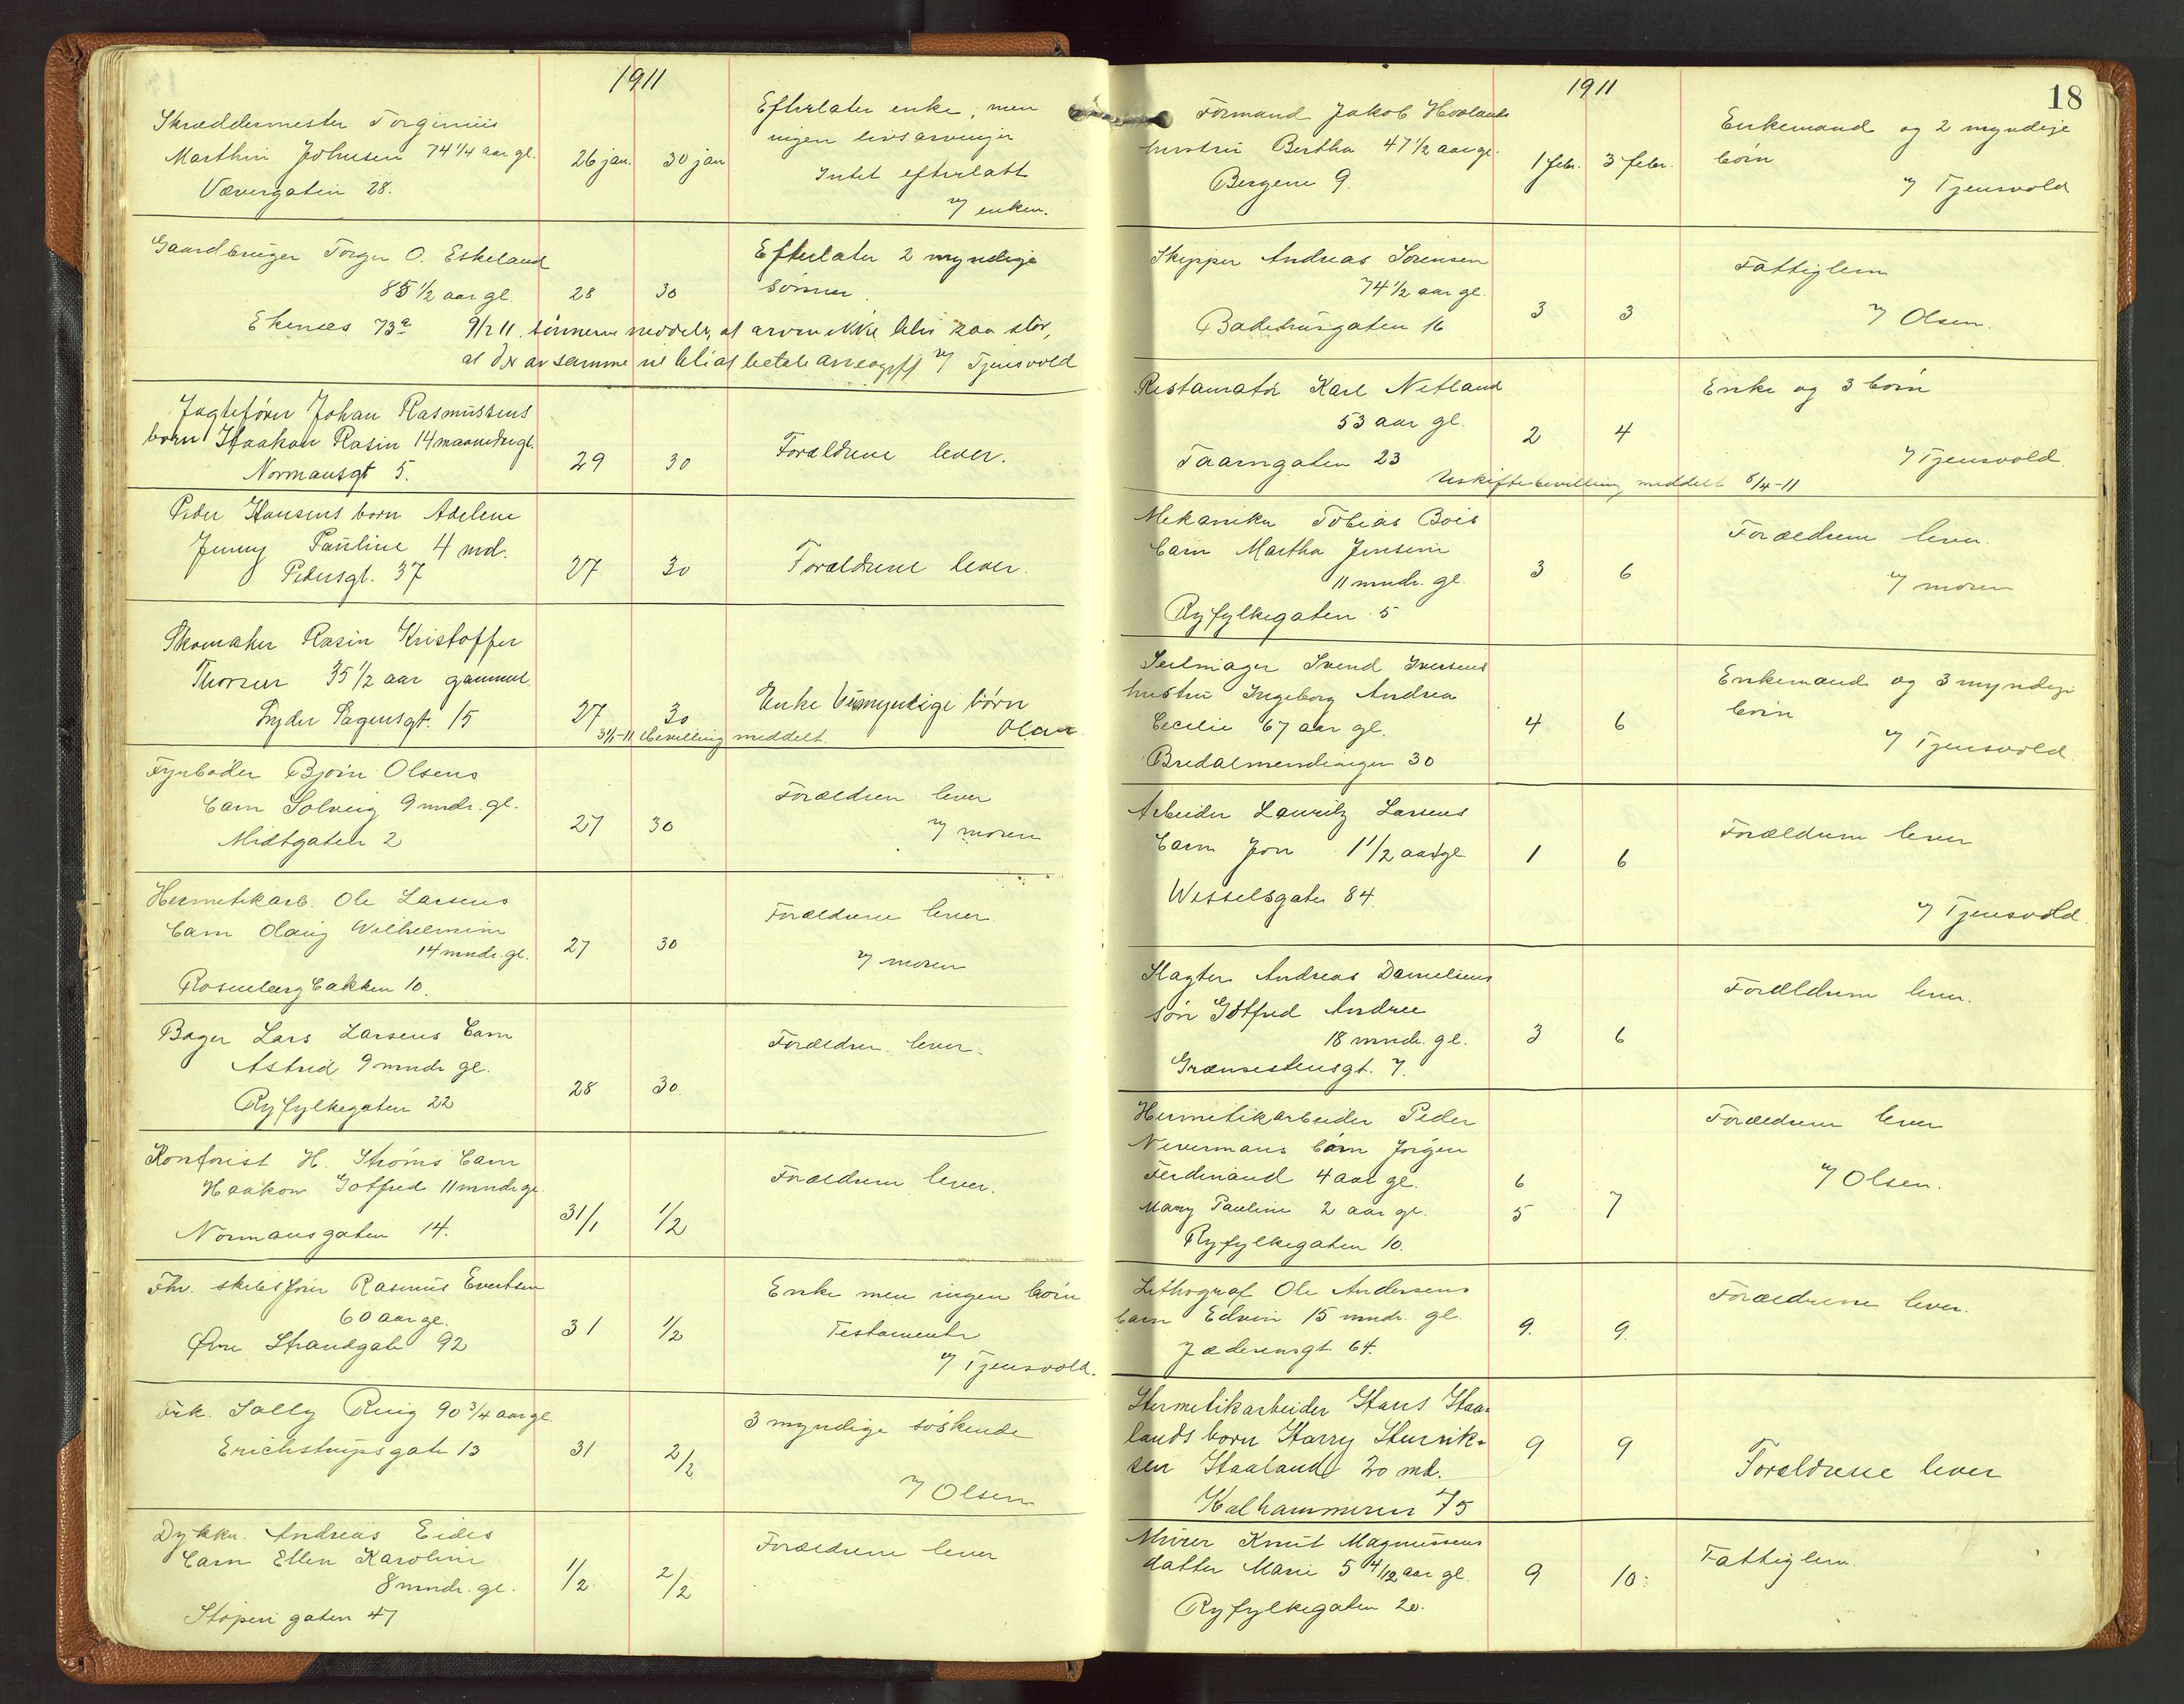 1911
Skræddermester Torginius
Marthin Johnsen 74 1/4 aar gl.
Vævergaten 28.
26 jan. 30 jan
Efterlater enke, men
ingen livsarvinger
Intet efterlatt
v/ enken.
Gaardbruger Torger O. Eskeland
85 1/2 aar gl.
28 30
Efterlater 2 myndige
sønner.
Ekenæs 73a 9/2 11. sønnerne meddeler, at arven ikke blir saa stor,
at der av samme vil bli at betale arveavgift v/ Tjensvold
Jagtefører Johan Rasmussens
barn Haakon Rasin 14 maaneder gl.
Normansgt 5.
29 30
Forældrene lever.
Peder Hansens barn Adelene
Jenny Pauline 4 md.
Pedersgt. 37
27 30
Forældrene lever.
Skomaker Rasin Kristoffer
Thorsen 35 1/2 aar gammel
Lyder Sagensgt. 15
27 30
Enke umyndige børn
Olsen
31/1-11 bevilling meddelt.
Fyrbøder Bjørn Olsens
barn Solveig 9 mndr. gl.
Midtgaten 2
27 30
Forældren lever
v/ moren
Hermetikarb. Ole Larsens
barn Olaug Wilhelmine
14 mndr. gl.
Rosenbergbakken 10.
27 30
Forældrene lever
v/ moren
Bager Lars Larsens barn
Astrid 9 mndr gl.
Ryfylkegaten 22
28 30
Forældren lever.
Kontorist H. Strøms barn
Haakon Gotfred 11 mndr gl
Normansgaten 14.
31/1 1/2
Forældrene lever.
Fhv. skibsfører Rasmus Evertsen
60 aar gl.
Øvre Strandgate 92
31 1/2
Enke men ingen børn
Testamente
v/ Tjensvold.
Frk. Sally Ruig 90 3/4 aar gl.
Erichstrupsgate 13
31 2/2
3 myndige søskende
v/ Olsen
Dykker Andreas Eides
barn Ellen Karoline
8 mndr. gl.
Støperigaten 47
1/2 2/2
Forældrene lever
1911
18
Formand Jakob Hovlands
hustru Bertha 47 1/2 aar gl.
Bergene 9.
1 febr. 3 febr.
Enkemand og 2 myndige
børn
v/ Tjensvold
Skipper Andreas Sørensen
74 1/2 aar gl.
Badehusgaten 16
3 3
Fattiglem
v/ Olsen.
Restauratør Karl Netland
53 aar gl.
Taarngaten 23
2 4
Enke og 3 børn
v/ Tjensvold.
Uskiftebevilling meddelt 8/4-11
Mekaniker Tobias Bøes
barn Martha Jensine
11 mndr. gl.
Ryfylkegaten 5
3 6
Forældrene lever.
v/ moren
Seilmager Svend Iversens
hustru Ingeborg Andrea
Cecilie 67 aar gl.
Bredalmendingen 30
4 6
Enkemand og 3 myndige
børn
v/ Tjensvold
Arbeider Lauritz Larsens
barn Jon 1 1/2 aar gl
Wesselsgaten 84.
1 6
Forældrene lever
v/ Tjensvold.
Slagter Andreas Danielsens
søn Gotfred Andree
18 mndr. gl.
Grænsestensgt. 7.
3 6
Forældrene lever.
Hermetikarbeider Peder
Nevermans barn Jørgen
Ferdinand 4 aar gl. 6
Mary Pauline 2 aar gl. 5 7
Ryfylkegaten 10.
Forældrene lever
v/ Olsen.
Lithograf Ole Andersens
barn Edvin 15 mndr. gl.
Jæderensgt 64.
9. 9.
Forældrene lever.
Hermetikarbeider Hans Haa-
lands barn Harry Henrik-
sen Haaland 20 md.
Kalhammeren 75
9 9
Forældrene lever
Murer Knut Magnussens
datter Marie 5 4/12 aar gl.
Ryfylkegaten 20.
9 10
Fattiglem.